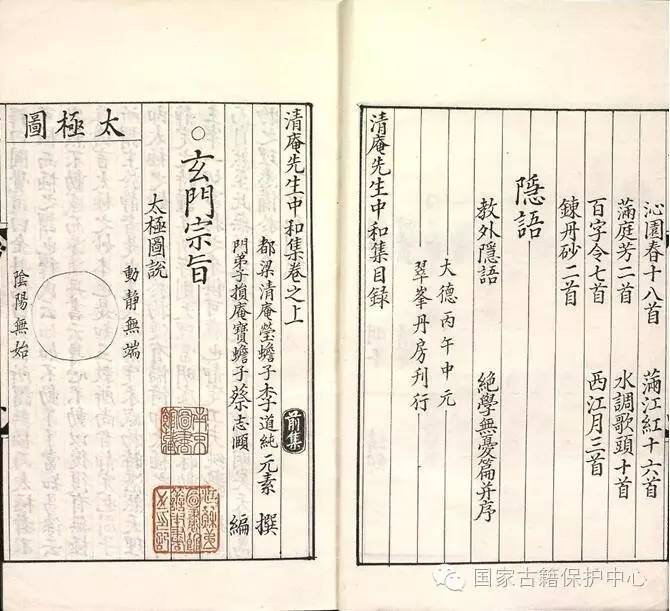 沁園春十八首 滿江紅十六首
滿庭芳二首 水調歌頭十首
百字令七首 西江月三首
鍊丹砂二首
隱語
教外隱語 絶學無憂篇并序
大德丙午中元
翠峯丹房刊行
清庵先生中和集目録
清庵先生中和集卷之上 前集
都梁清庵瑩蟾子李道純元素 撰
門弟子損庵寶蟾子蔡志頤 編
○玄門宗旨
太極圖説
太極圖
動靜無端
陰陽無始
南京圖書館藏
国家古籍保护中心